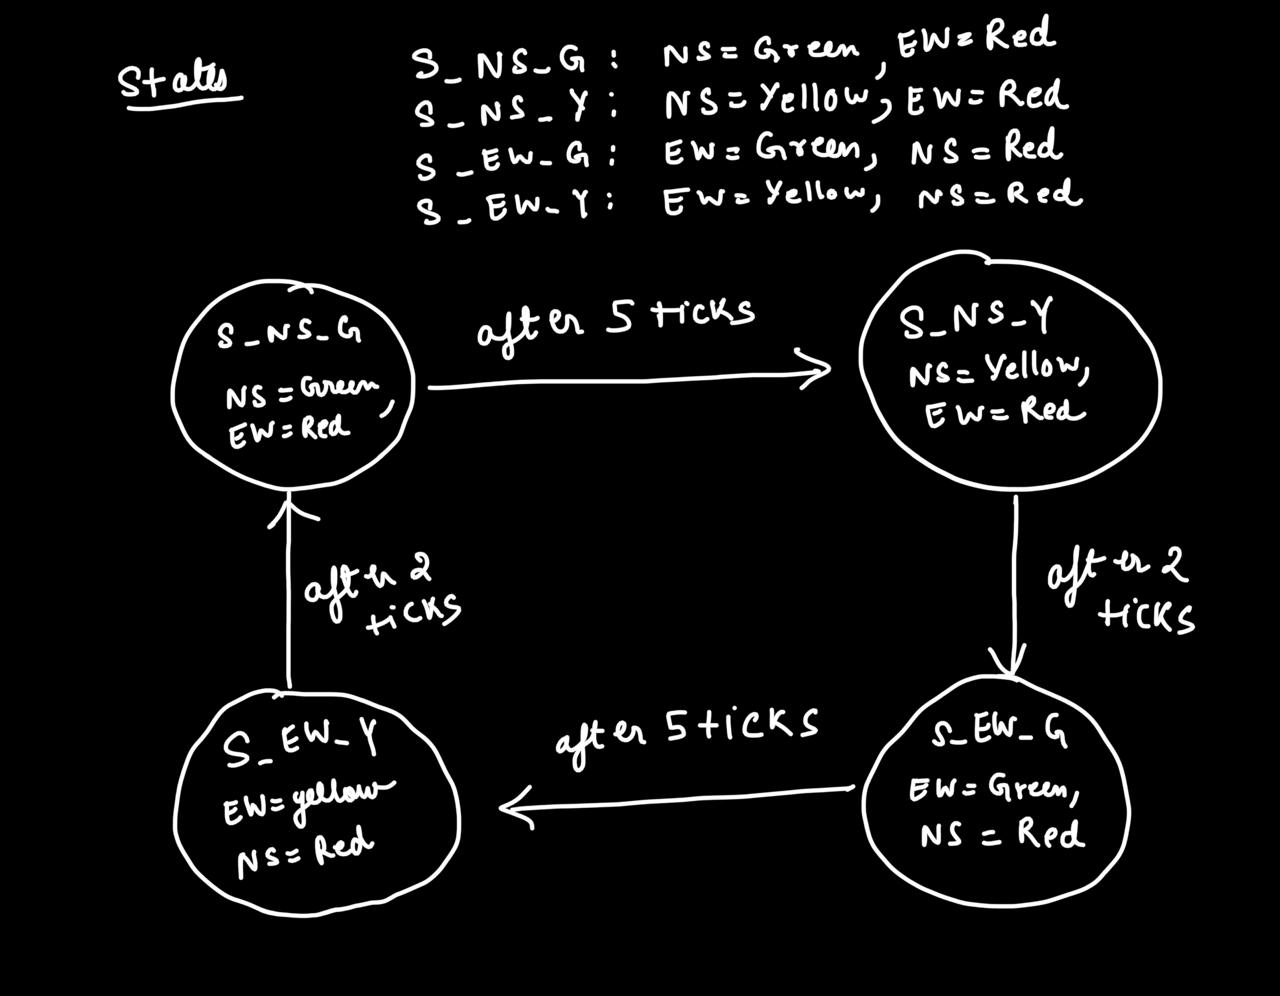 States
S_NS_G : NS = Green, EW = Red
S_NS_Y : NS = Yellow, EW = Red
S_EW_G : EW = Green, NS = Red
S_EW_Y : EW = Yellow, NS = Red
S_NS_G
NS = Green,
EW = Red
after 5 ticks
S_NS_Y
NS = Yellow,
EW = Red
after 2
ticks
after 2
ticks
S_EW_Y
EW = yellow
NS = Red
after 5 ticks
S_EW_G
EW = Green,
NS = Red